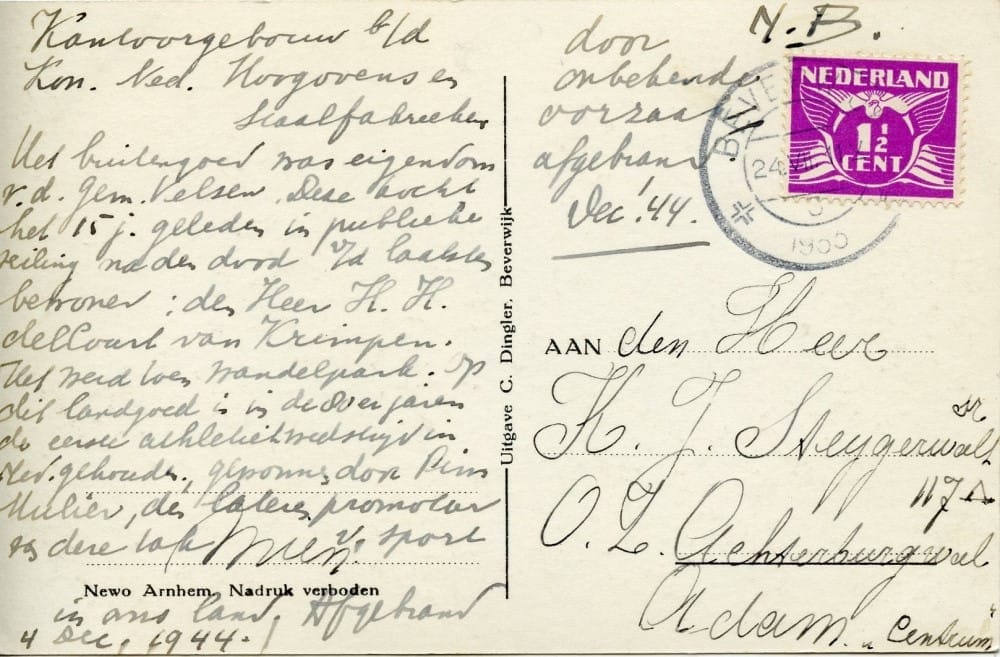 Kantoorgebouw b/d
Kon. Ned. Hoogovens en
Staalfabrieken
Het buitengoed was eigendom
v. d. gem. Velsen. Deze kocht
het 15 j. geleden in publieke
veiling na den dood v/d laatsten
bewoner; den Heer H. H.
delCourt van Krimpen.
Het werd toen wandelpark. Op
dit landgoed is in de 80er jaren
de eerste athletiekwedstrijd in
Ned. gehouden, gewonnen door Pim
Mulier, den lateren promotor
dere tak v. sport
Newo Arnhem. Nadruk verboden
in ons land. Afgebrand
4 Dec. 1944.
Uitgave C. Dingler. Beverwijk
N.B.
door
onbekende
oorzaak
afgebrand
Dec. '44.
NEDERLAND
1½
CENT
BEVE
24.VII
1935
AAN den Heer
K. J. Steygerwalt
117
O. Z. Achterburgwal
Adam. "Centrum"